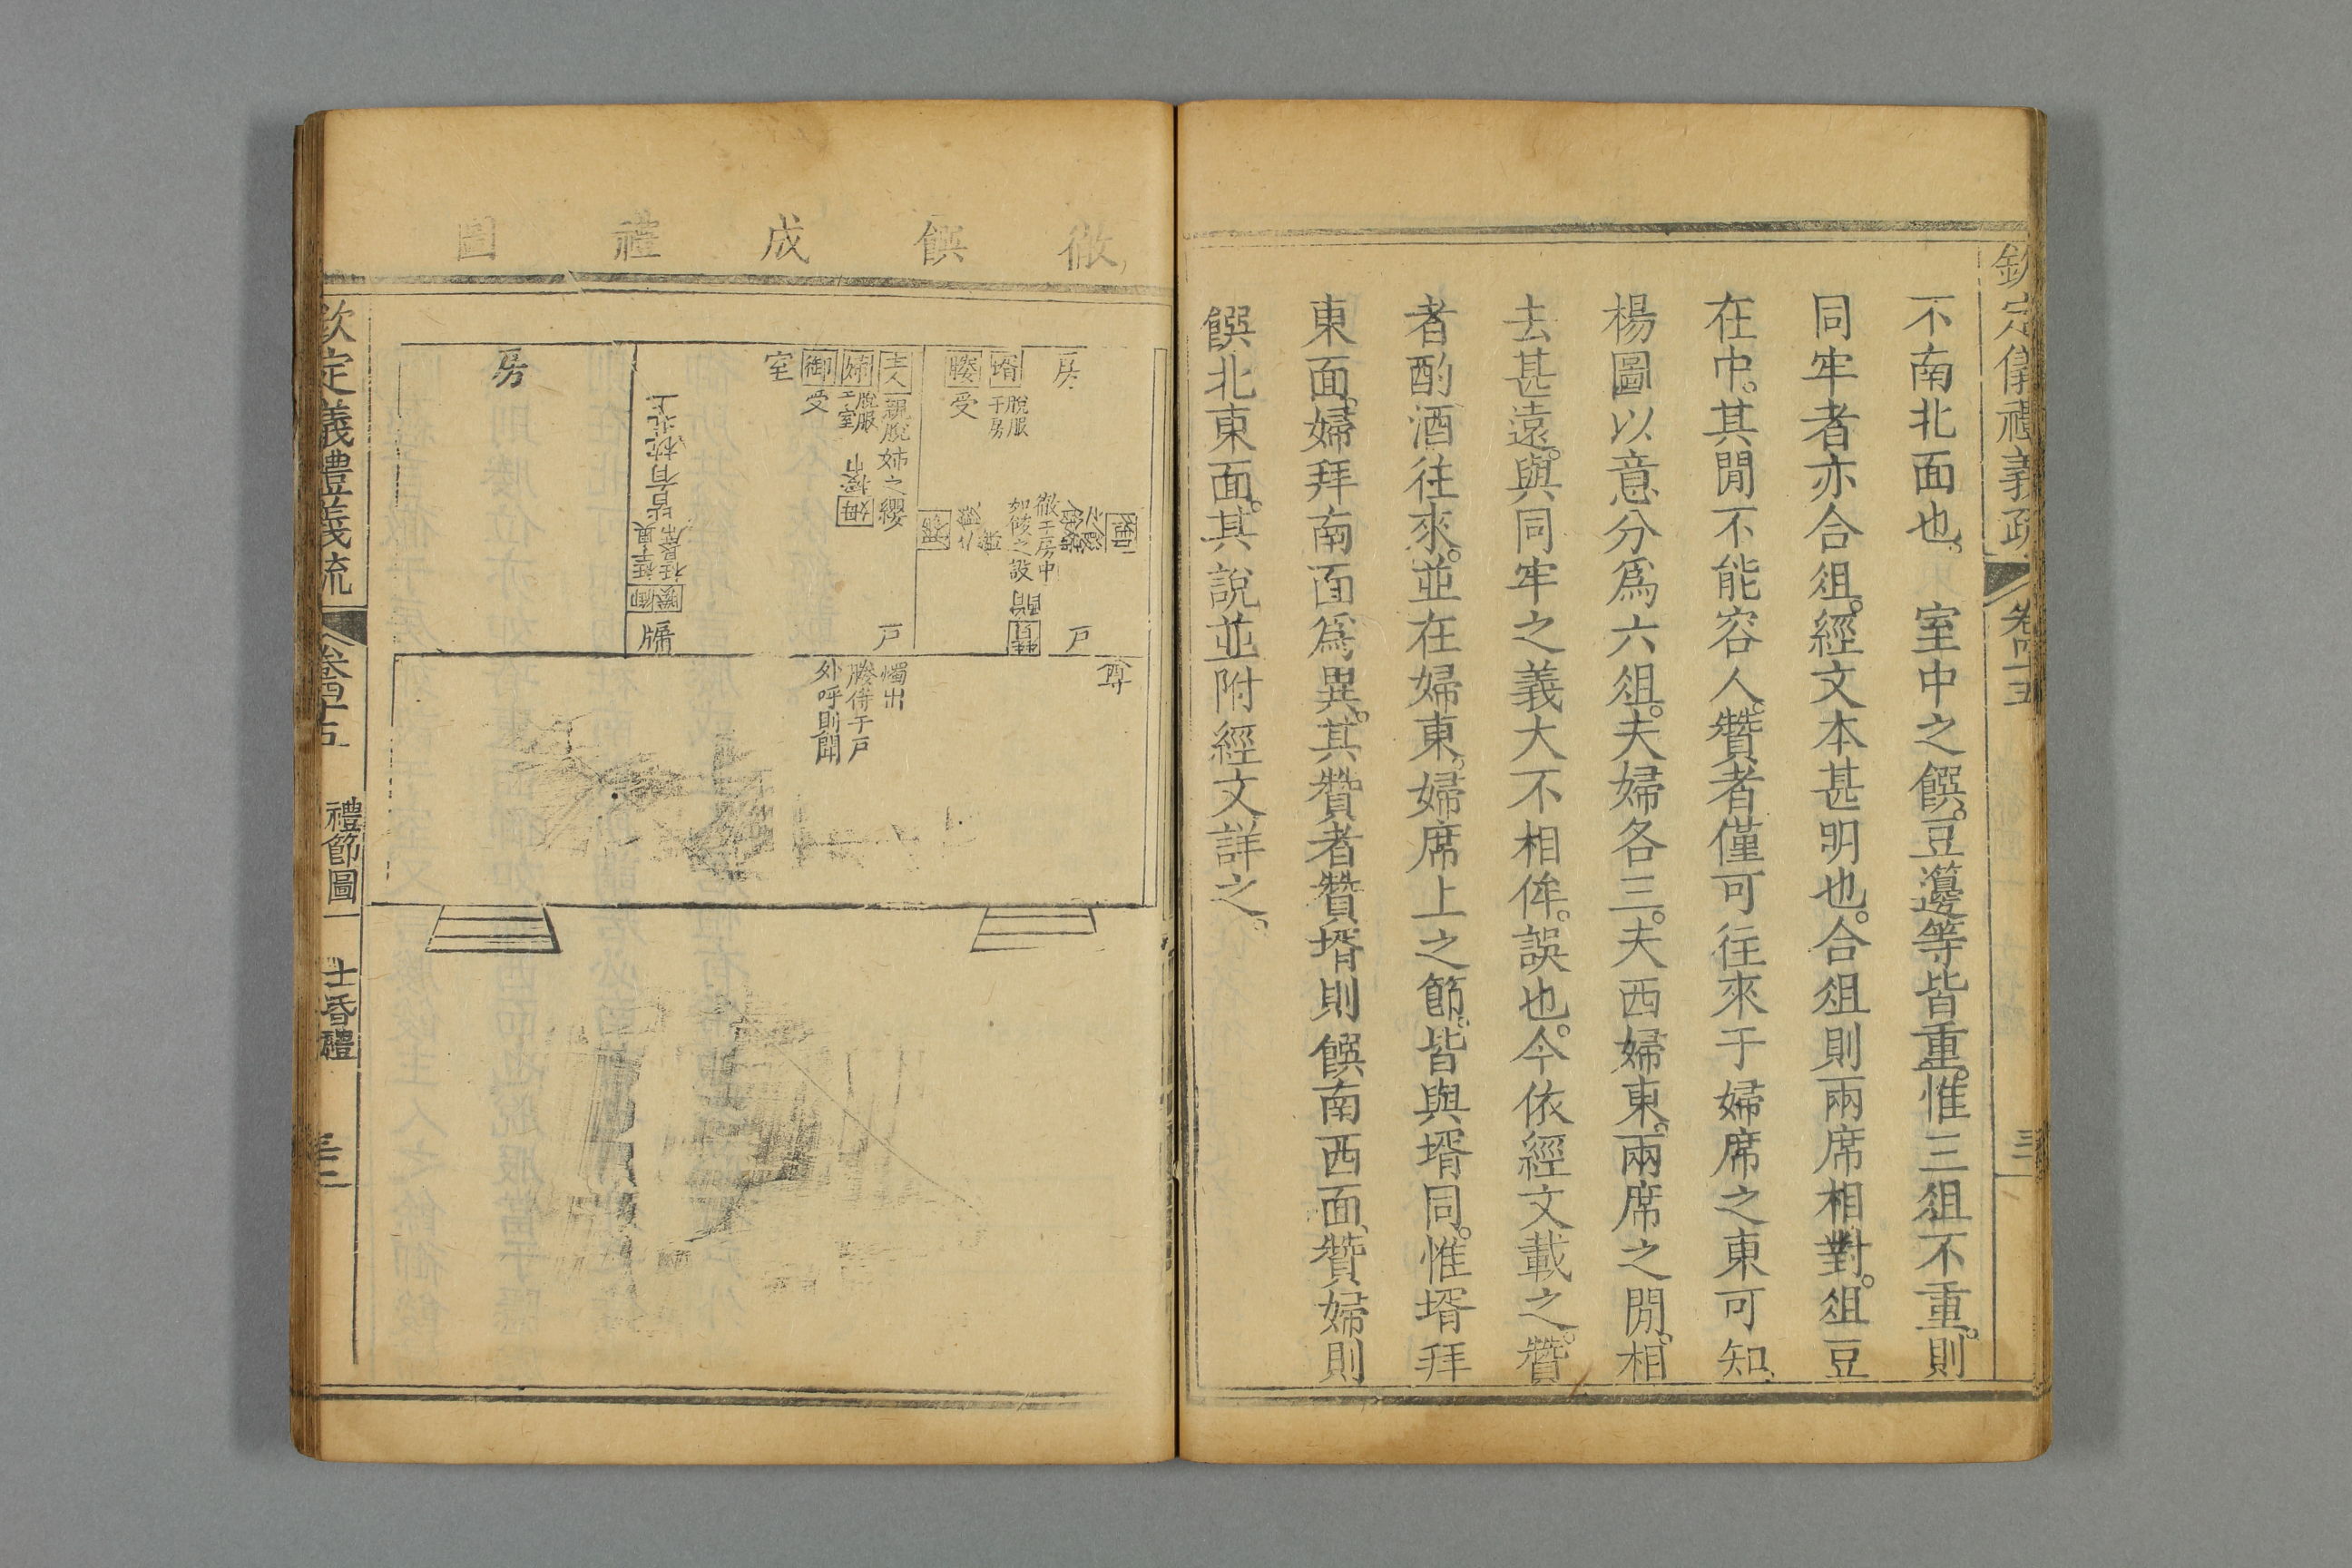 欽定儀禮義疏
卷四十五
不南北面也室中之饌豆籩等皆重惟三俎不重則
同牢者亦合俎經文本甚明也合俎則兩席相對俎豆
在中其閒不能容人贊者僅可往來于婦席之東可知
楊圖以意分爲六俎夫婦各三夫西婦東兩席之閒相
去甚遠與同牢之義大不相侔誤也今依經文載之贊
者酌酒往來並在婦東婦席上之節皆與壻同惟壻拜
東面婦拜南面爲異其贊者贊壻則饌南西面贊婦則
饌北東面其說並附經文詳之
徹饌成禮圖
房
壻
脫服
于房
媵
受
徹于房中
如設之設
戶
尊
主人
親脫
婦之纓
婦
脫服
于室
姆
授巾
御
受
室
戶
燭出
媵侍于戶
外呼則聞
皆有枕北上
媵
御
牖
房
欽定義禮義疏
卷四十五
禮節圖一
士昏禮